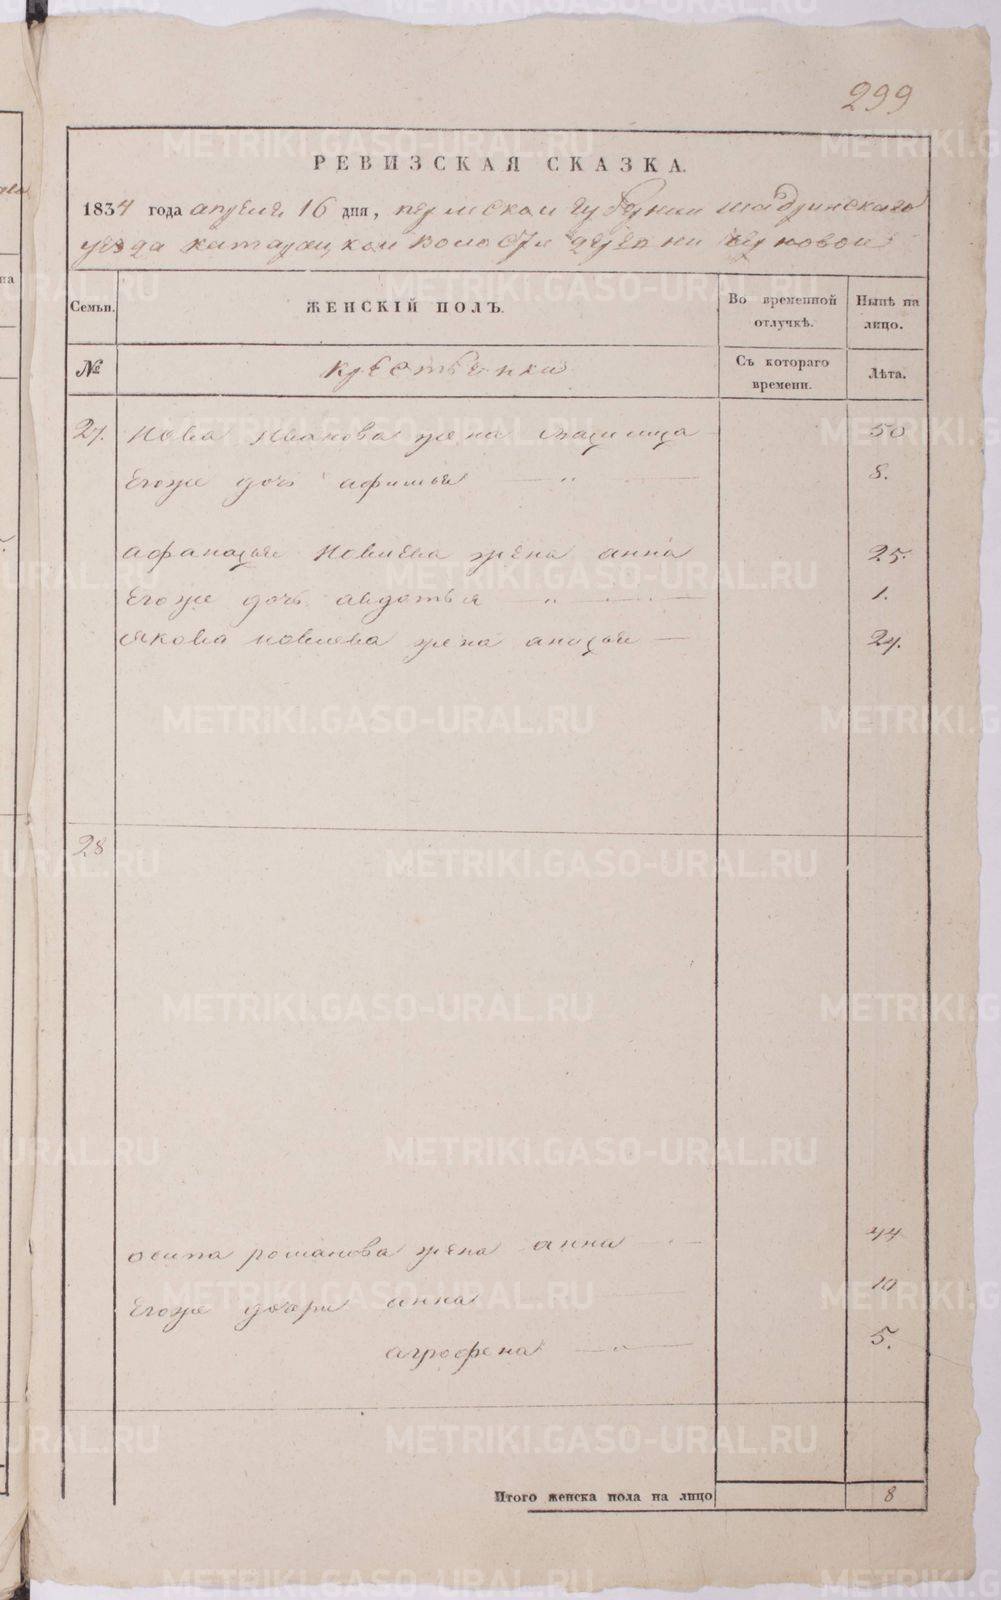 299
РЕВИЗСКАЯ СКАЗКА.
1834 года апреля 16 дня, пермской губернии шадринского
уезда катайской волости деревни черновой
Семьи.
ЖЕНСКІЙ ПОЛЪ.
Во временной отлучкѣ.
Нынѣ на лицо.
№
крестьенки
Съ котораго времени.
Лѣта.
27. Иова Иванова жена 50
Егоже дочь афимья 8.
афанасья Иовлева жена анна 25.
Егоже дочь авдотья 1.
Якова иовлева жена 24.
28
осипа романова жена анна 44
Егоже дочери анна 10
агрофена 5.
Итого женска пола на лицо 8
METRIKI.GASO-URAL.RU